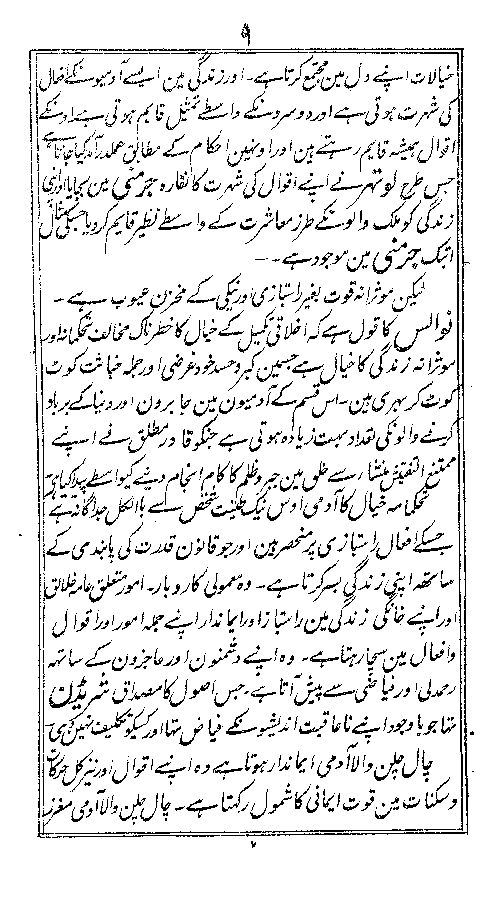 ۹
خیالات اپنے دل مین مجتمع کرتا ہے۔ اور زندگی مین ایسے آدمیونکے افعال
کی شہرت ہوتی ہے اور دوسرونکے واسطے تمثیل قایم ہوتی ہے اونکے
اقوال ہمیشہ قایم رہتے ہین اور اونہین احکام کے مطابق عملدرآمد کیا جاتا ہے
جس طرح لوتھر نے اپنے اقوال کی شہرت کا نقارہ جرمنی مین بجایا اور اپنی
زندگی کو ملک والونکے طرز معاشرت کے واسطے نظیر قایم کر دیا جسکی مثال
ابتک جرمنی مین موجود ہے۔ ـــ
لیکن موثرانہ قوت بغیر راستبازی اور نیکی کے مخزن عیوب ہے ۔
نوالس کا قول ہے کہ اخلاقی تکمیل کے خیال کا خطرناک مخالف تحکمانہ اور
موثرانہ زندگی کا خیال ہے جسمین کبر و حسد خود غرضی اور جملہ خباثت کوٹ
کوٹ کر بھری ہین۔ اس قسم کے آدمیون مین جابرون اور دنیا کے برباد
کرنے والونکی تعداد بہت زیادہ ہوتی ہے جنکو قادر مطلق نے اپنے
ممتنع التفتیش منشاء سے خلق مین جبر و ظلم کا کام انجام دینے کیواسطے پیدا کیا ہے
تحکمانہ خیال کا آدمی اوس نیک طینت شخص سے بالکل جداگانہ ہے
جسکے افعال راستبازی پر منحصر ہین اور جو قانون قدرت کی پابندی کے
ساتھہ اپنی زندگی بسر کرتا ہے۔ وہ معمولی کاروبار۔ امور متعلق عامہ خلائق
اور اپنے خانگی زندگی مین راستباز اور ایماندار اپنے جملہ امور اور اقوال
وافعال مین سچا رہتا ہے۔ وہ اپنے دشمنون اور عاجزون کے ساتھہ
رحمدلی اور فیاضی سے پیش آتا ہے۔ جس اصول کا مصداق شریڈن
تہا جو باوجود اپنے ناعاقبت اندیشونکے فیاض تہا اور کسیکو تکلیف نہین دی
چال چلن والا آدمی ایماندار ہوتا ہے وہ اپنے اقوال اور نیز کل حرکات
و سکنات مین قوت ایمانی کا شمول رکہتا ہے۔ چال چلن والا آدمی معزز